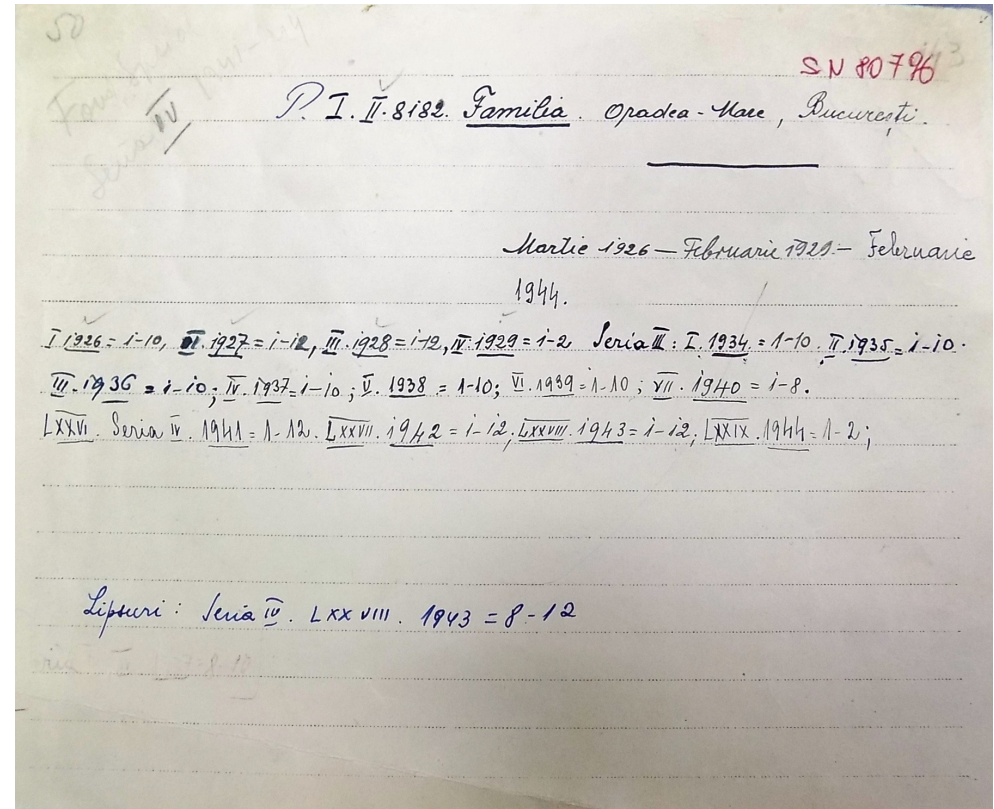 50
SN 80796
Seria IV
P. I. II. 8182. Familia. Opadea-Mare, București.
Martie 1926 — Februarie 1929 — Februarie
1944.
I 1926 = 1-10, II. 1927 = 1-12, III. 1928 = 1-12, IV. 1929 = 1-2 Seria III: I. 1934. = 1-10. II. 1935 = 1-10.
III. 1936 = 1-10; IV. 1937 = 1-10; V. 1938 = 1-10; VI. 1939 = 1-10; VII. 1940 = 1-8.
LXXVI. Seria IV. 1941 = 1-12. LXXVII. 1942 = 1-12; LXXVIII. 1943 = 1-12; LXXIX. 1944 = 1-2;
Lipsuri: Seria IV. LXXVIII. 1943 = 8-12